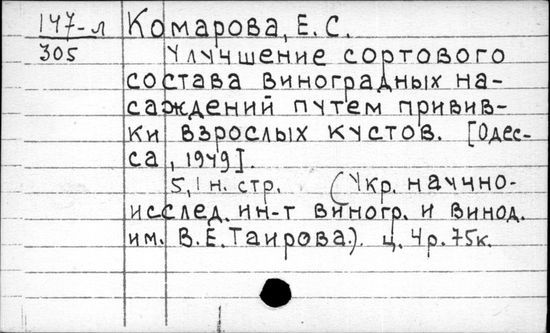 147-л Комарова, Е. С.
305 Улучшение сортового
состава виноградных на-
саждений путем привив-
ки взрослых кустов. [Одес-
са, 1949].
5, 1 н. стр. (Укр. научно-
исслед. ин-т виногр. и винод.
им. В. Е. Таирова.). ц. 4 р. 75к.